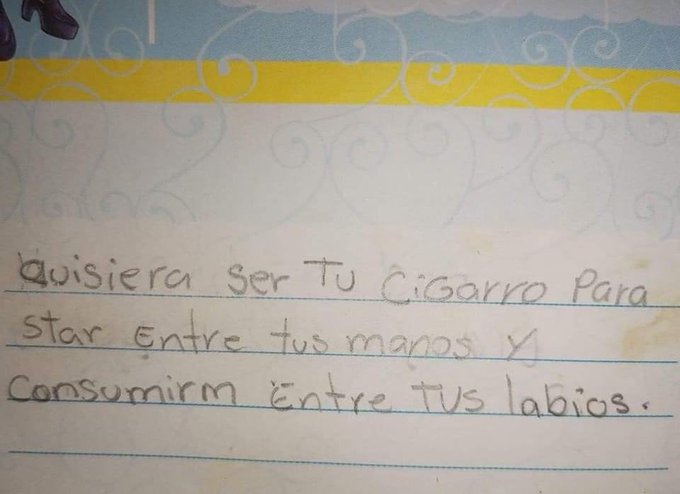 Quisiera ser Tu CiGarro Para
star Entre tus manos y
Consumirm Entre TUS labios.